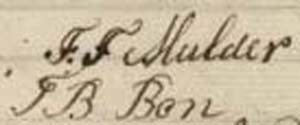 F. F Mulder
T B. Bon